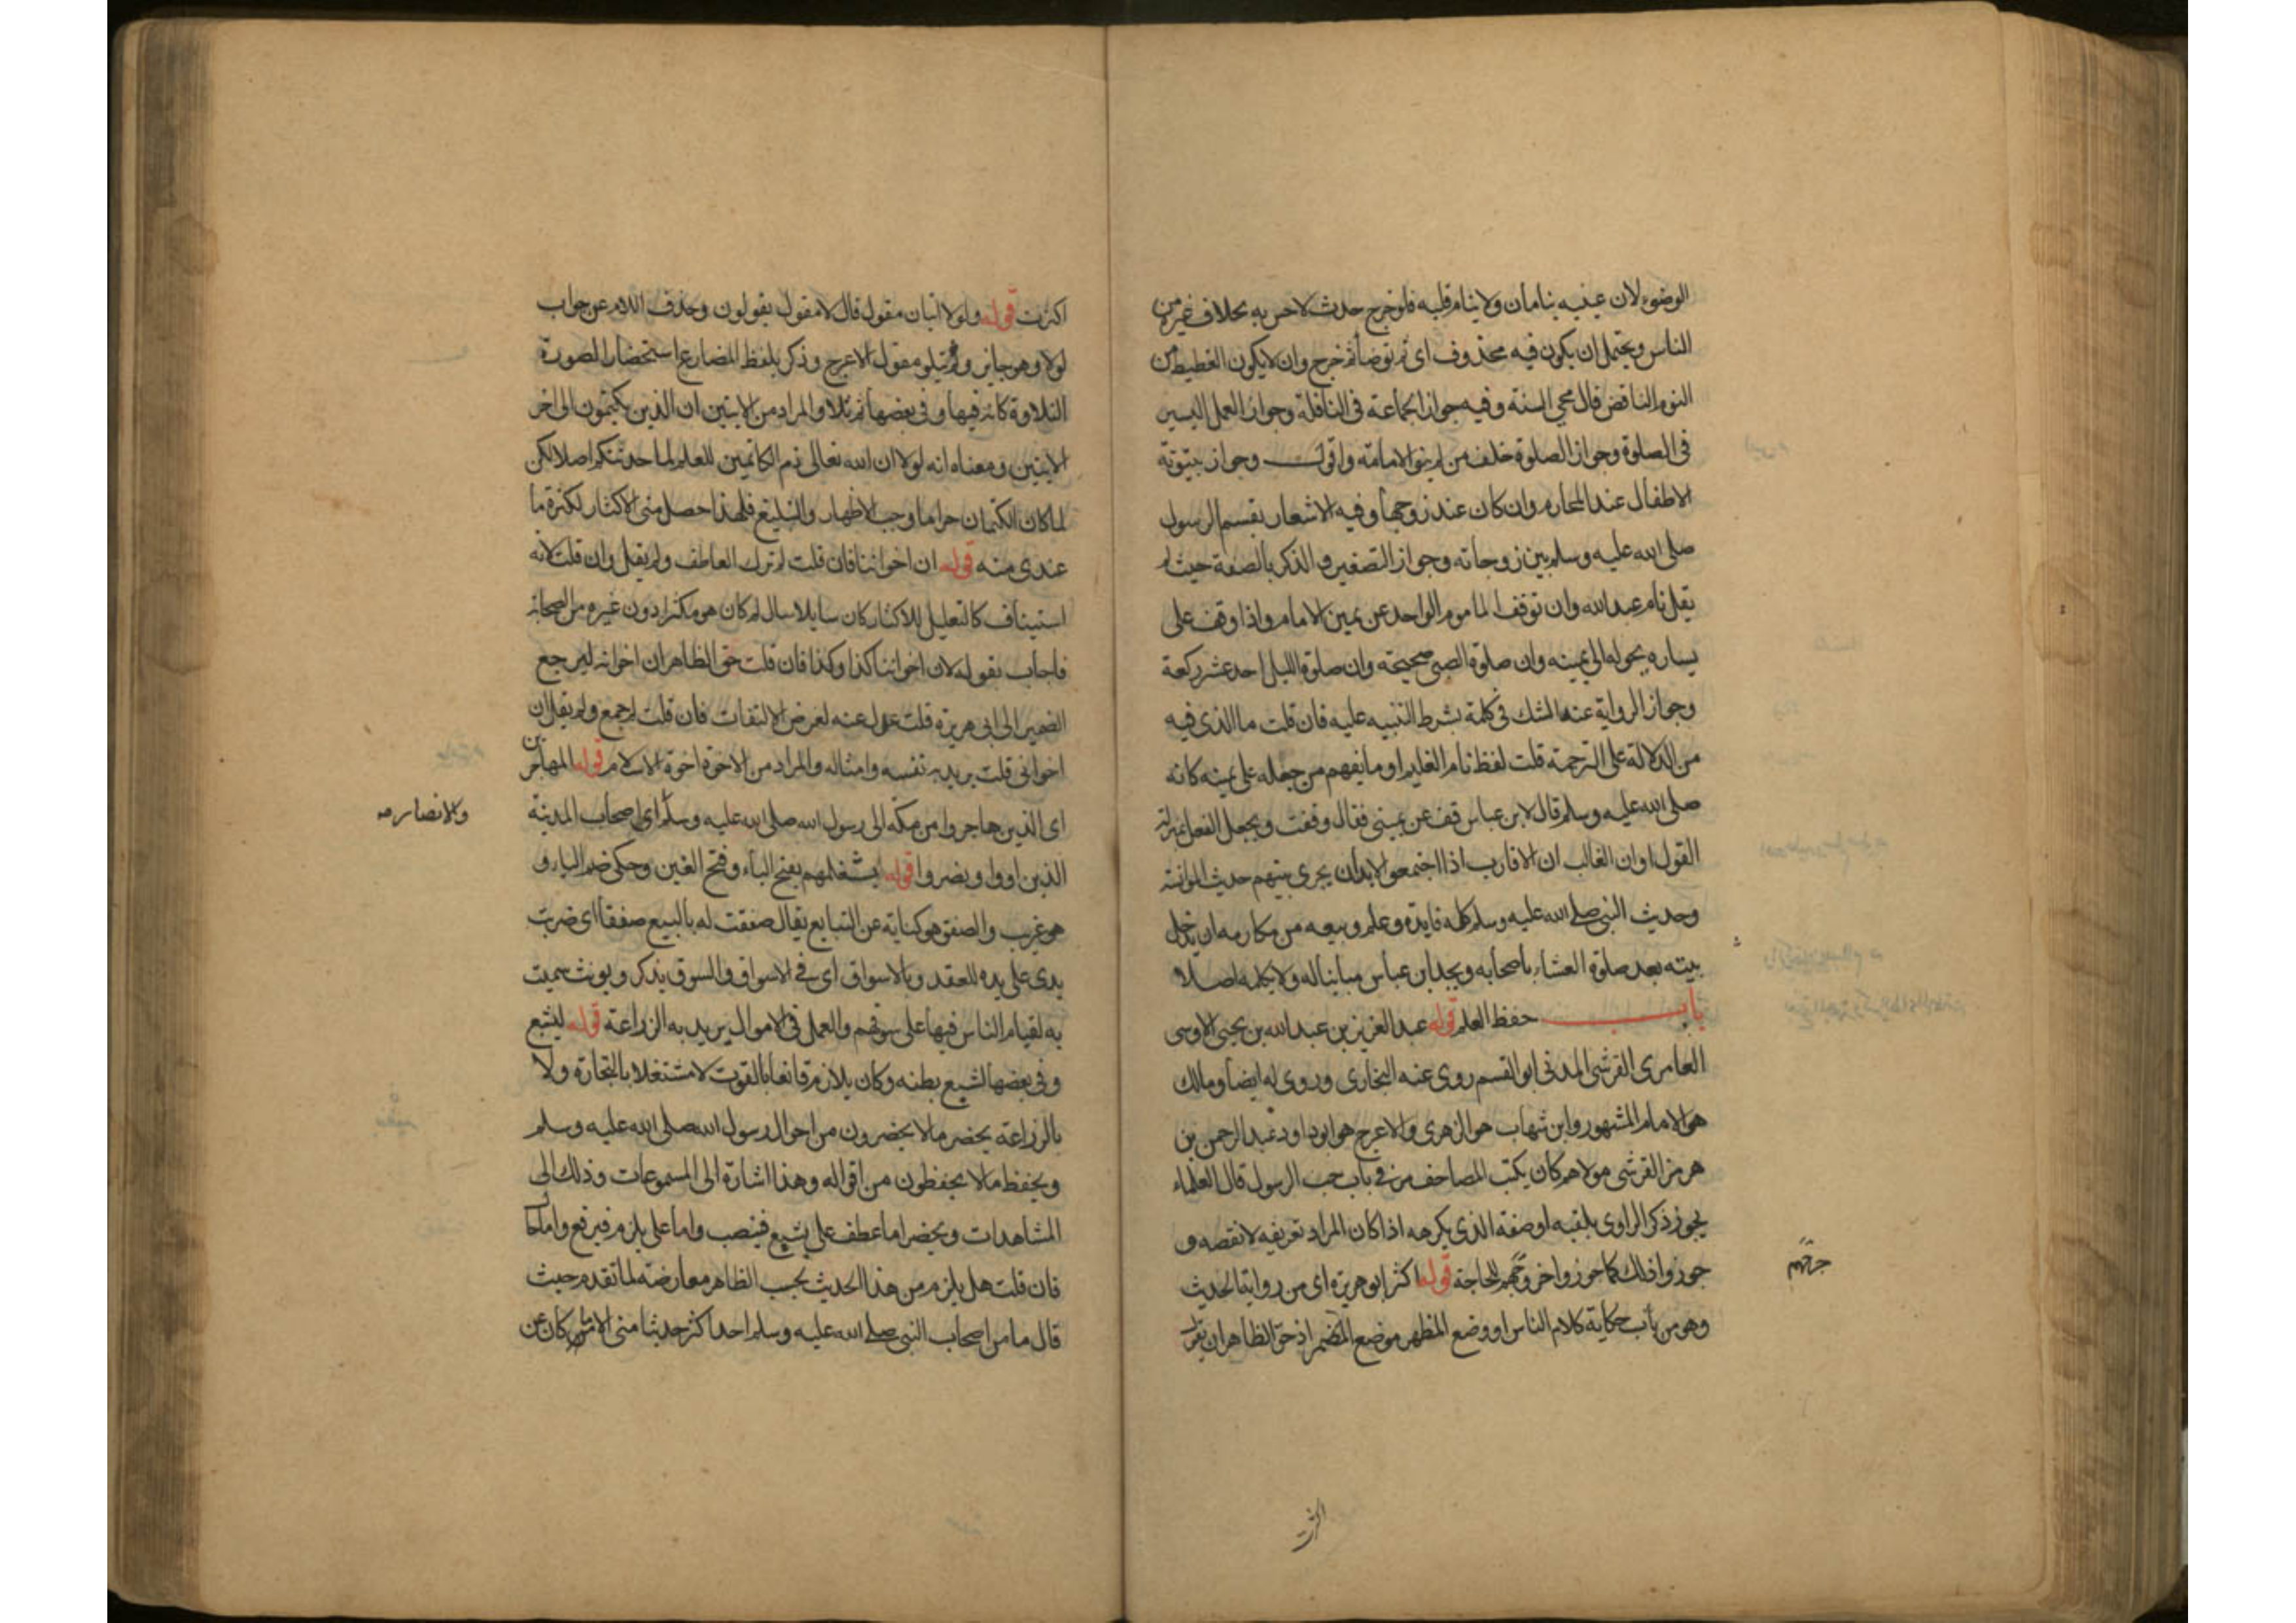 الوضوء لان عينيه ينامان ولا ينام قلبه فلو خرج حدث لاحس به بخلاف غيره من
الناس ويحتمل ان يكون فيه محذوف اى ثم توضأ ثم خرج وان لا يكون الغطيط من
النوم الناقض قال محي السنة وفيه جواز الجماعة فى النافلة وجواز العمل اليسير
فى الصلوة وجواز الصلوة خلف من لم ينو الامامة واقول وجواز بيتوتة
الاطفال عند المحارم وان كان عند زوجها وفيه الاشعار بقسم الرسول
صلى الله عليه وسلم بين زوجاته وجواز التصغير والذكر بالصفة حيث لم
يقل نام عبد الله وان توقف الماموم الواحد عن يمين الامام واذا وقف على
يساره يحوله الى يمينه وان صلوة الصبى صحيحة وان صلوة الليل احد عشر ركعة
وجواز الرواية عند الشك فى كلمة بشرط التنبيه عليه فان قلت ما الذى فيه
من الدلالة على الترجمة قلت لفظ نام الغليم او ما يفهم من جعله على يمينه كانه
صلى الله عليه وسلم قال لابن عباس قف عن يمينى فقال وقفت ويجعل الفعل بمنزلة
القول او ان الغالب ان الاقارب اذا اجتمعوا لابد ان يجرى بينهم حديث الموانسة
وحديث النبى صلى الله عليه وسلم كله فايدة وعلم ويبعد من مكارمه ان يدخل
بيته بعد صلوة العشاء باصحابه ويجد ابن عباس مبايتا له ولا يكلمه اصلا
باب حفظ العلم قوله عبد العزيز بن عبد الله بن يحيى الاويسى
العامرى القرشى المدنى ابو القسم روى عنه البخارى وروى له ايضا ومالك
هو الامام المشهور وابن شهاب هو الزهرى والاعرج هو ابو داود عبد الرحمن بن
هرمز القرشى مولاهم كان يكتب المصاحف مر فى باب حب الرسول قال العلماء
يجوز ذكر الراوى بلقبه او صفته الذى يكرهه اذا كان المراد تعريفه لا نقصه و
جوزوا ذلك كما جوزوا خروجهم للحاجة قوله اكثر ابو هريرة اى من رواية الحديث
جرحهم
وهو من باب حكاية كلام الناس او وضع المظهر موضع المضمر اذ حق الظاهر ان يقول
اكثرت
اكثرت قوله ولولا ايتان مقول قال لا مقول يقولون وحذف اللام عن جواب
لولا وهو جايز وثم يتلو مقول الاعرج وذكر بلفظ المضارع استحضارا لصورة
التلاوة كانه فيها وفى بعضها ثم تلا والمراد من الايتين ان الذين يكتمون الى اخر
الايتين ومعناه انه لولا ان الله تعالى ذم الكاتمين للعلم لما حدثتكم اصلا لكن
لما كان الكتمان حراما وجب الاظهار والتبليغ فلهذا حصل منى الاكثار لكثرة ما
عندى منه قوله ان اخواننا فان قلت لم ترك العاطف ولم يقل وان قلت لانه
استيناف كالتعليل للاكثار كان سايلا سال لم كان هو مكثرا دون غيره من الصحابة
فاجاب بقوله لان اخواننا كذا وكذا فان قلت حق الظاهر ان اخوانه ليرجع
الضمير الى ابى هريرة قلت عدل عنه لغرض الالتفات فان قلت لم جمع ولم يقل ان
اخوانى قلت يريد به نفسه وامثاله والمراد من الاخوة اخوة الاسلام قوله المهاجرين
اى الذين هاجروا من مكة الى رسول الله صلى الله عليه وسلم اى اصحاب المدينة
والانصار صه
الذين اووا ونصروا قوله يشغلهم بفتح الياء وفتح الغين وحكى ضم الياء و
هو غريب والصفق هو كناية عن التبايع يقال صفقت له بالبيع صفقا اى ضربت
يدى على يده للعقد وبالاسواق اى فى الاسواق والسوق يذكر ويونث سميت
به لقيام الناس فيها على سوقهم والعمل فى الاموال يريد به الزراعة قوله ليشبع
وفى بعضها لشبع بطنه وكان يلازم قانعا بالقوت لا مشتغلا بالتجارة ولا
بالزراعة يحضر ما لا يحضرون من احوال رسول الله صلى الله عليه وسلم
ويحفظ ما لا يحفظون من اقواله وهذا اشارة الى المسموعات وذلك الى
المشاهدات ويحضر اما عطف على يشبع فينصب واما على يلزم فيرفع واما حال
فان قلت هل يلزم من هذا الحديث بحب الظاهر معارضته لما تقدم حيث
قال ما من اصحاب النبى صلى الله عليه وسلم احد اكثر حديثا منى الا ما كان عن